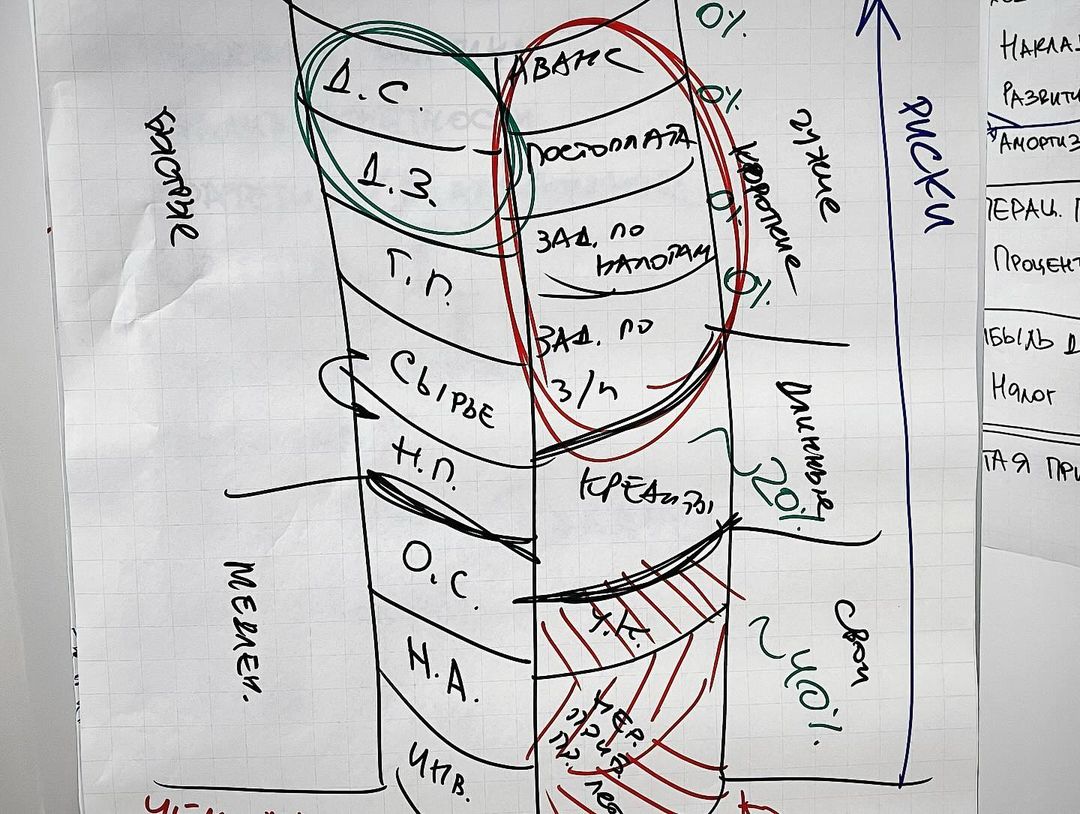 0%
Д.С.
АВАНС
0%
Д.З.
ПОСТОПЛАТА
0%
ЗАД. ПО
НАЛОГАМ
Г.П.
0%
ЗАД. ПО
З/П
СЫРЬЕ
Н.П.
КРЕДИТЫ
~20%
О.С.
У.К.
Н.А.
НЕР.
ПРИБ.
ПР.
ЛЕТ
~40%
ИНВ.
БЫСТРЫЕ
МЕДЛЕН.
ЧУЖИЕ
КОРОТКИЕ
ДЛИННЫЕ
СВОИ
РИСКИ
НАКЛАД
РАЗВИТИ
АМОРТИЗ
ПЕРАЦ. П
ПРОЦЕНТ
ИБЫЛЬ Д
НАЛОГ
ТАЯ ПРИ